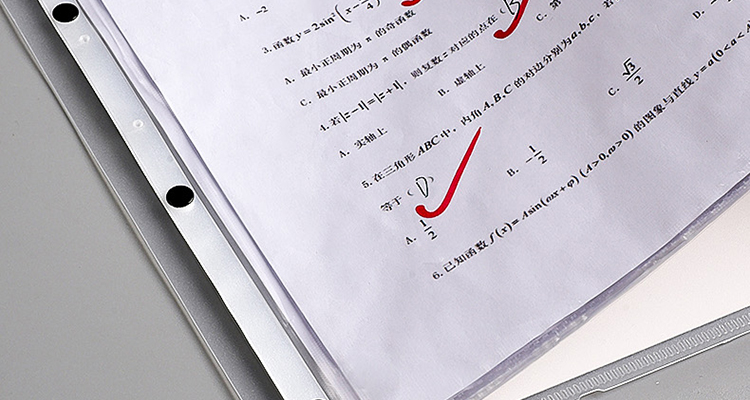 A. -2
3. 函数 y=2sin²(x-π/4)
A. 最小正周期为 π 的奇函数
C. 最小正周期为 π 的偶函数
4. 若|z-1|=|z+1|，则复数z对应的点在（B
A. 实轴上 B. 虚轴上 C. 第
5. 在三角形 ABC 中，内角 A,B,C 的对边分别为a,b,c，若
等于（D）
A. 1/2 B. -1/2 C. √3/2 D. -
6. 已知函数 f(x)=Asin(ωx+φ)(A>0,ω>0) 的图象与直线 y=a(0<a<A